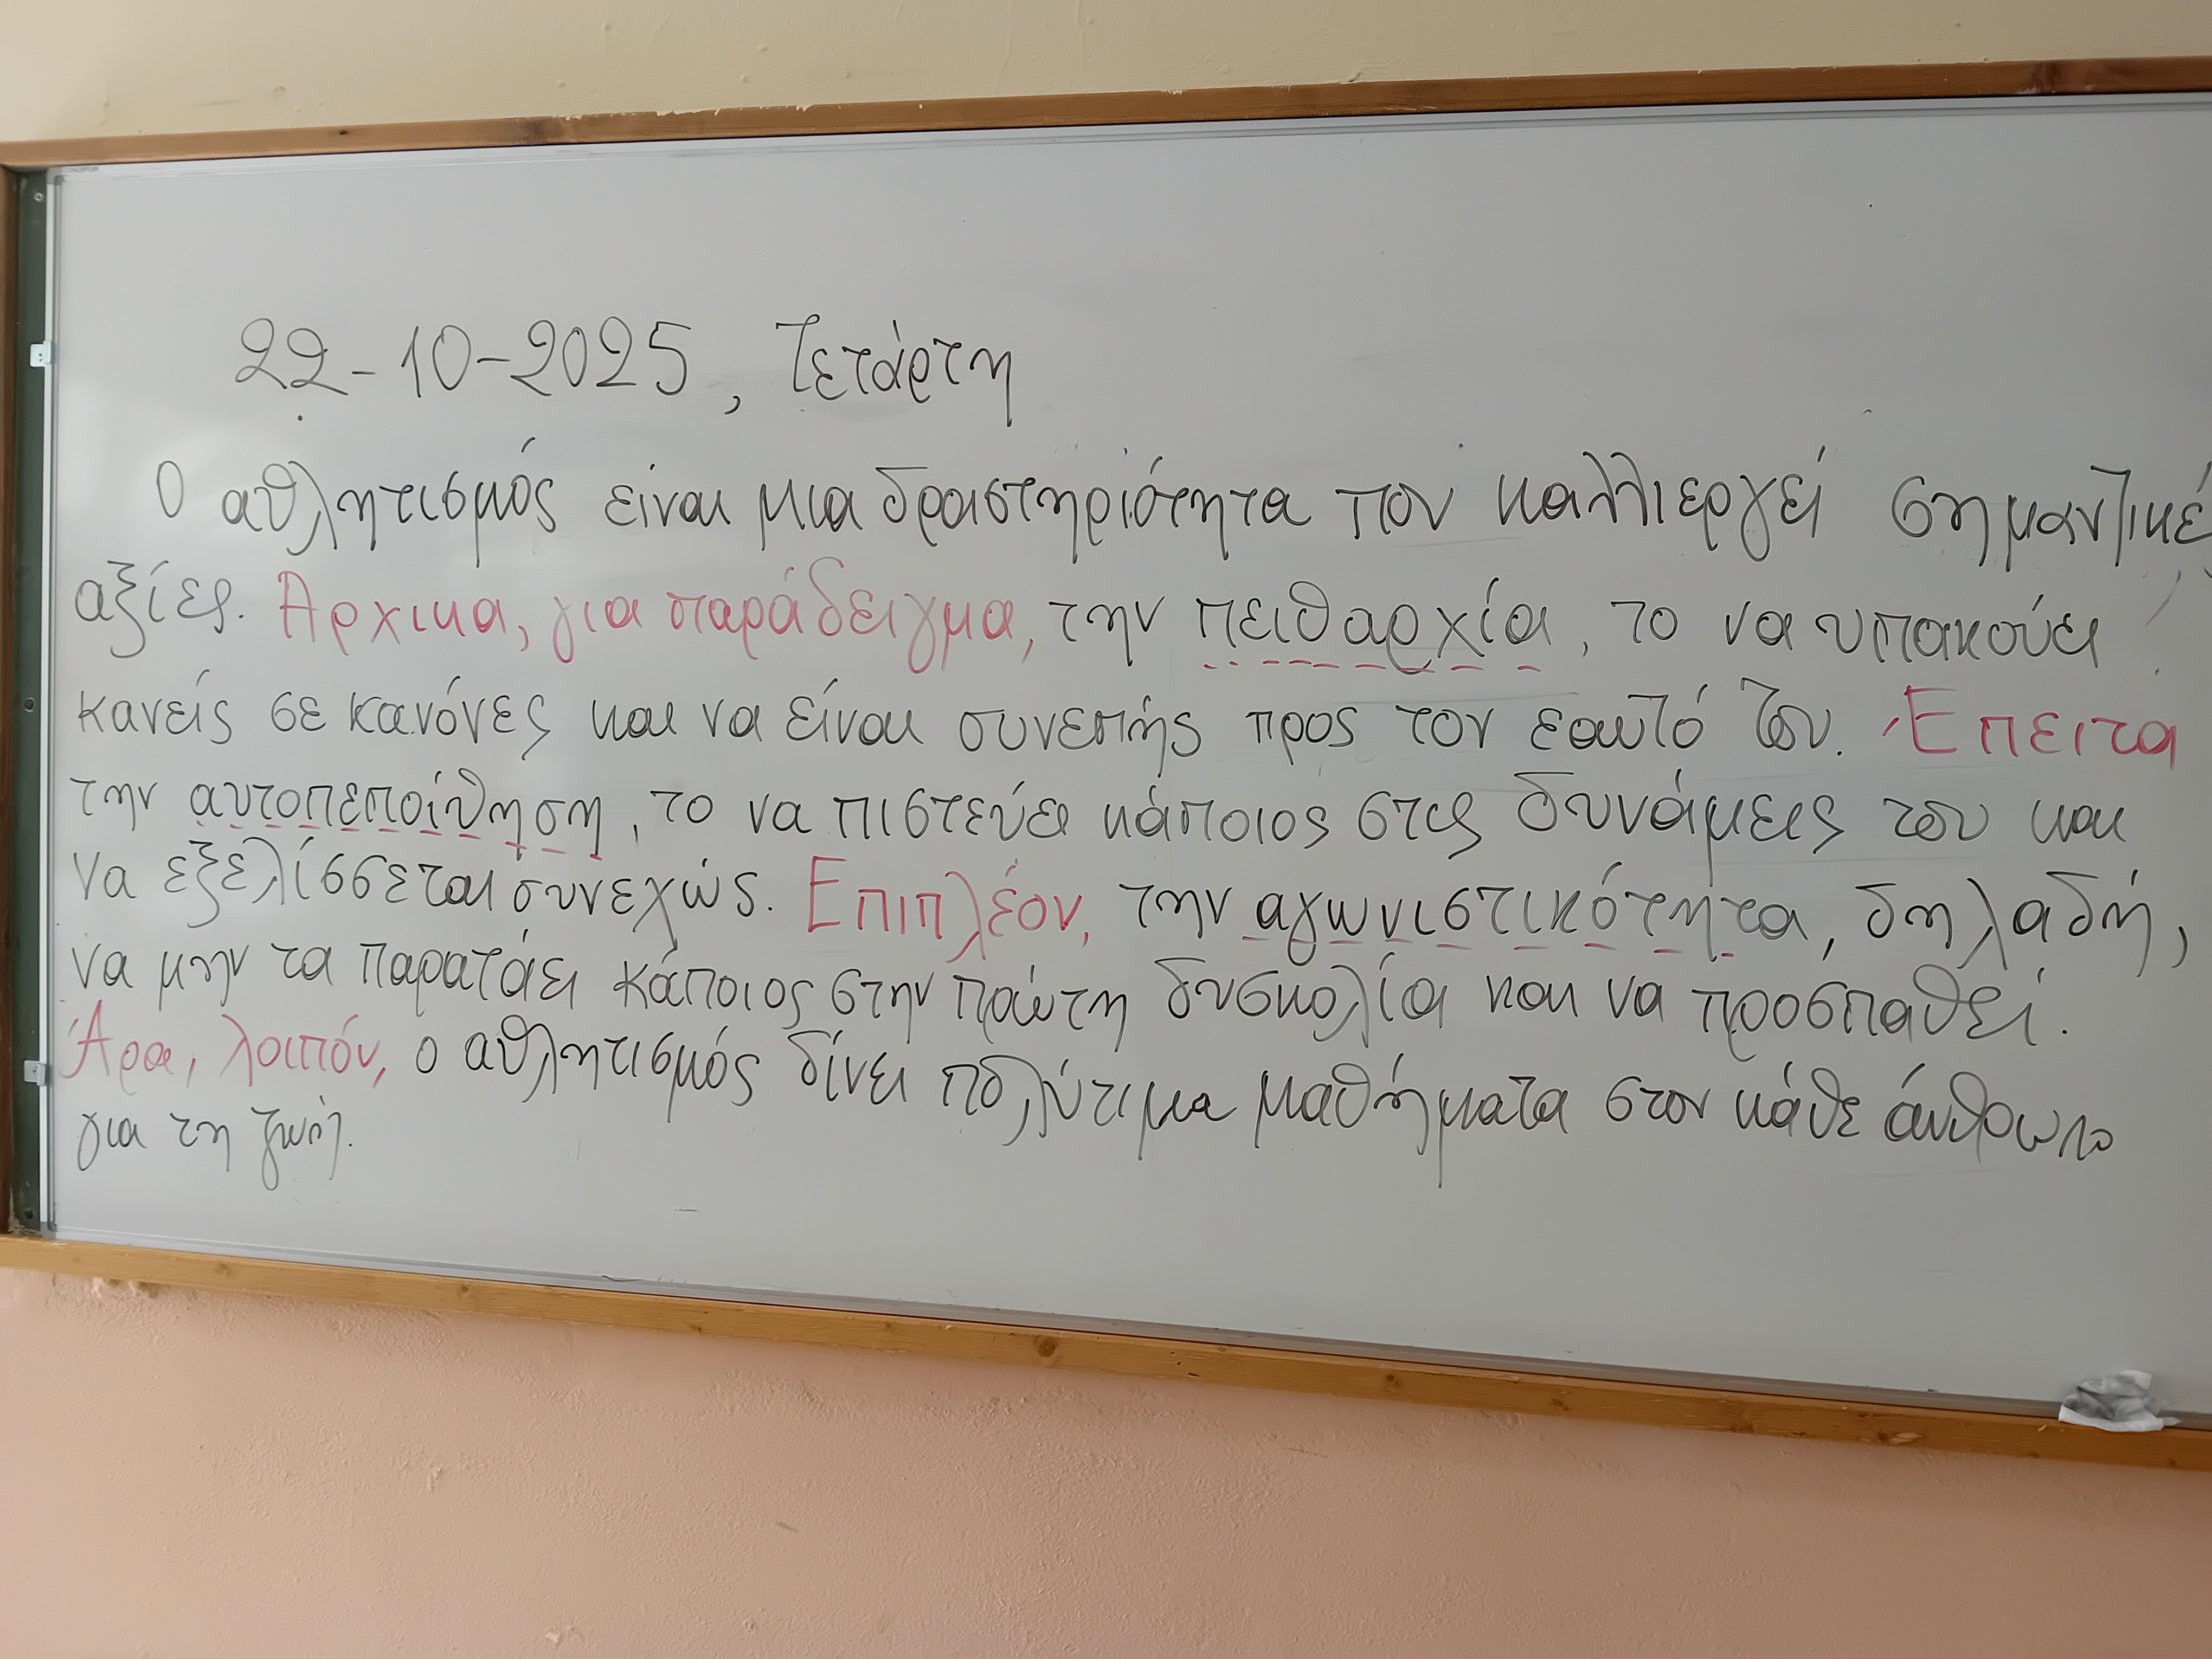 22-10-2025, Τετάρτη
Ο αθλητισμός είναι μια δραστηριότητα που καλλιεργεί σημαντικέ
αξίες. Αρχικα, για παράδειγμα, την πειθαρχία, το να υπακούει
κανείς σε κανόνες και να είναι συνεπής προς τον εαυτό του. Έπειτα
την αυτοπεποίθηση, το να πιστεύει κάποιος στις δυνάμεις του και
να εξελίσσεται συνεχώς. Επιπλέον, την αγωνιστικότητα, δηλαδή,
να μην τα παρατάει κάποιος στην πρώτη δυσκολία και να προσπαθεί.
Άρα, λοιπόν, ο αθλητισμός δίνει πολύτιμα μαθήματα στον κάθε άνθρωπο
για τη ζωή.